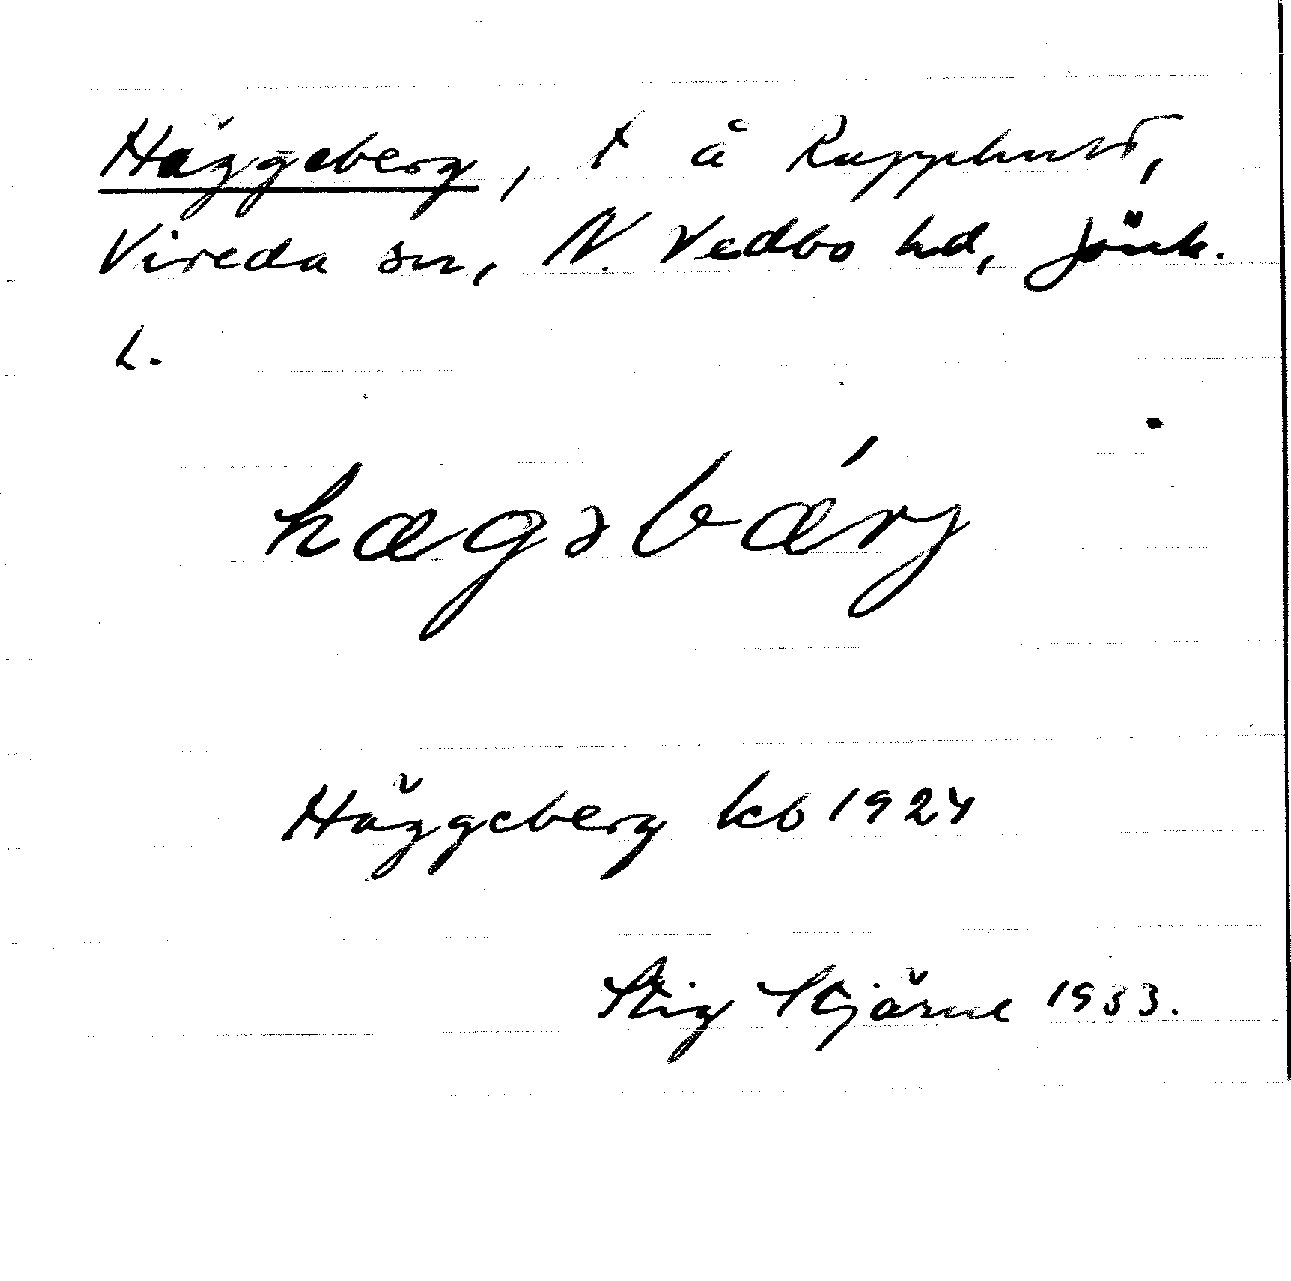 Häggeberg, t å Rupphult,
Vireda sn, N. Vedbo hd, Jönk.
l.
hægəbǽrj
Häggeberg kb 1924
Stig Stjärne 1933.